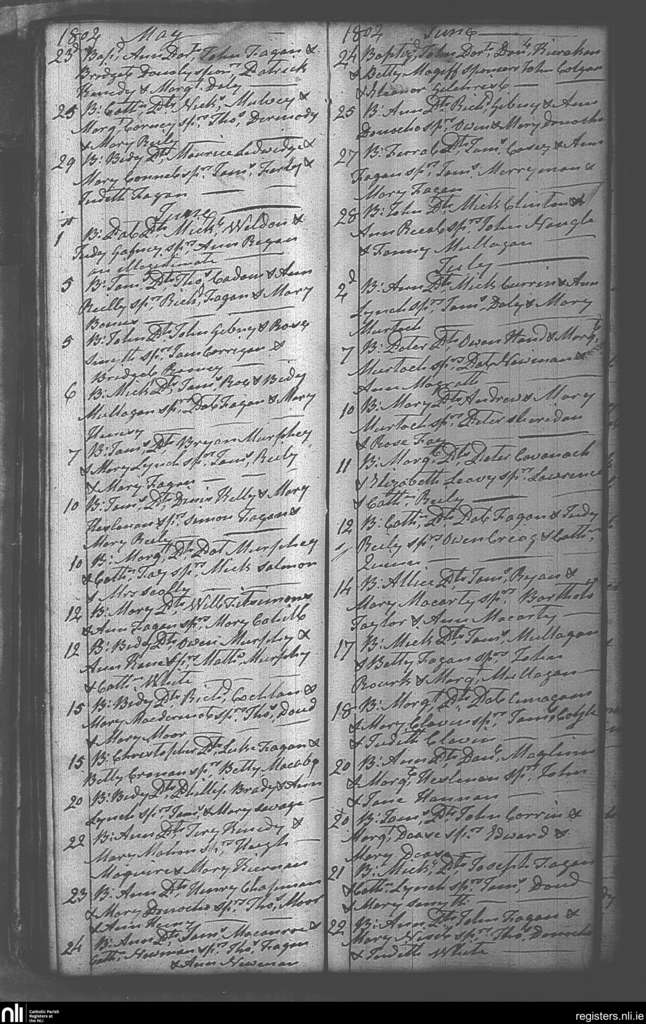 1802 May
23d Bapd. Ann Dr. John Fagan &
Bridget Donaly spon. Patrick
Kenedy & Margt. Daly
25 B: Cathn. Dr. Nichs. Mulvey &
Margt. Corney spr. Thos. Dermody
& Mary Reily
29 B: Bidy Dr. Maurice Ledwidge &
Mary Connel spr. Jams. Farly &
Judeth Fagan
June
1 B: Dr. Mick Weldon &
Judy Gafney spr. Ann Regan
an illegitimate
5 B: Jams. Dr. Thos. & Ann
Reilly spr. Richd. Fagan & Mary
5 B: John Dr. John & Rose
Smyth spr. Jam Corrigan &
Bridget Rooney
6 B: Mick Dr. Jams. & Bidy
Mullagan spr. Pat Fagan & Mary
7 B: Jams. Dr. Bryan Murphy
& Mary Lynch spr. Jams. Reily
& Mary Fagan
10 B: Jam. Dr. Kelly & Mary
spr. Simon Fagan &
Mary Reily
10 B: Margt. Dr. Pat Murphy
& Cathn. Fay spr. Mick Salmon
& Mrs
12 B: Mary Dr. Will Fitsimons
& Ann Fagan spr. Mary Cahill
12 B: Bidy Dr. Owen Murphy &
Ann Kane spr. Mathw. Murphy
& Cathn. White
15 B: Bidy Dr. Richd. Coghlan &
Mary Macdermot spr. Thos. Doud
& Mary Moor
15 B: Christopher Dr. Luke Fagan &
Betty Cronan spr. Betty
20 B: Bidy Dr. Phillip Brady & Ann
Lynch spr. Jams. & Mary Savage
22 B: Ann Dr. Kenedy &
Mary Mahon spr. Hugh
Maguire & Mary Kiernan
23 B: Ann Dr. Henry Chapman
& Mary Donocho spr. Thos. Moor
& Ann Henry
24 B: Ann Dr. Jams. &
Cathn. Newman spr. Thos. Fagan
& Ann Newman
1802 June
24 Baptd. John Dr. Danl. Kierahan
& Betty Magiff sponsors John Colgan
& Eleanor
25 B: Ann Dr. Richd. & Ann
Donocho spr. Owen & Mary Donocho
27 B: Dr. Jams. Casey & Ann
Fagan spr. Jams. Merryman &
Mary Fagan
28 B: John Dr. Mick Clinton &
Ann spr. John Naugle
& Mullagan
July
2d B: Ann Dr. Mick Currin & Ann
Lynch spr. Jams. Daly & Mary
Murtoch
7 B: Peter Dr. Owen Hand & Margt.
Murtoch spr. Pat Newman &
Ann
10 B: Mary Dr. Andrew & Mary
Murtoch spr. Peter Sheridan
& Rose Fay
11 B: Margt. Dr. Peter Cavanach
& Elezabeth Leavy spr. Lawrence
& Cathn. Reily
12 B: Cathn. Dr. Pat Fagan & Judy
Reily spr. Owen & Cathn.
Quinn
14 B: Allice Dr. Jams. Ryan &
Mary Macarty spr. Barthole
Taylor & Ann Macarty
17 B: Mick Dr. Jams. Mullagan
& Betty Fagan spr. John
Rourk & Margt. Mullagan
18 B: Margt. Dr. Pat
& Mary Claven spr. Jams.
& Judeth Claven
20 B: Ann Dr. Danl. Maglinn
& Margt. spr. John
& Jane Hannan
20 B: Jams. Dr. John Corrin &
Margt. Dease spr. Edward &
Mary Dease
21 B: Mick Dr. Joseph Fagan
& Cathn. Lynch spr. Jams. Doud
& Mary Smyth
22 B: Ann Dr. John Fagan &
Mary spr. Thos. Donocho
& Judeth White
nli
Catholic Parish
Registers at
the NLI
registers.nli.ie